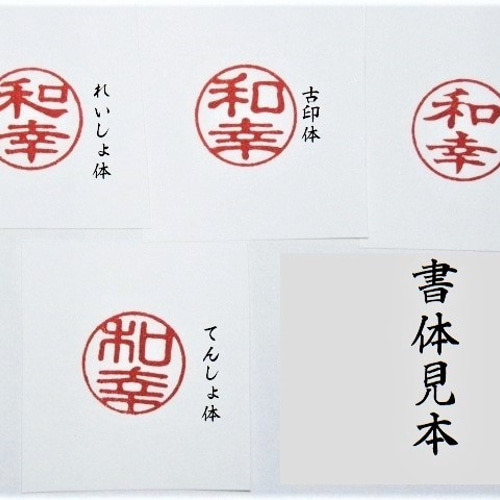 和幸
れいしょ体
和幸
古印体
和幸
和幸
てんしょ体
書体見本